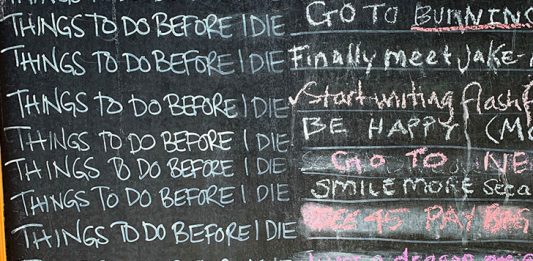 THINGS TO DO BEFORE I DIE GO TO BURNING
THINGS TO DO BEFORE I DIE Finally meet JAKE-
THINGS TO DO BEFORE I DIE Start writing flash
THINGS TO DO BEFORE I DIE BE HAPPY (Mo
THINGS TO DO BEFORE I DIE GO TO NE
THINGS TO DO BEFORE I DIE SMILE MORE
THINGS TO DO BEFORE I DIE PAY